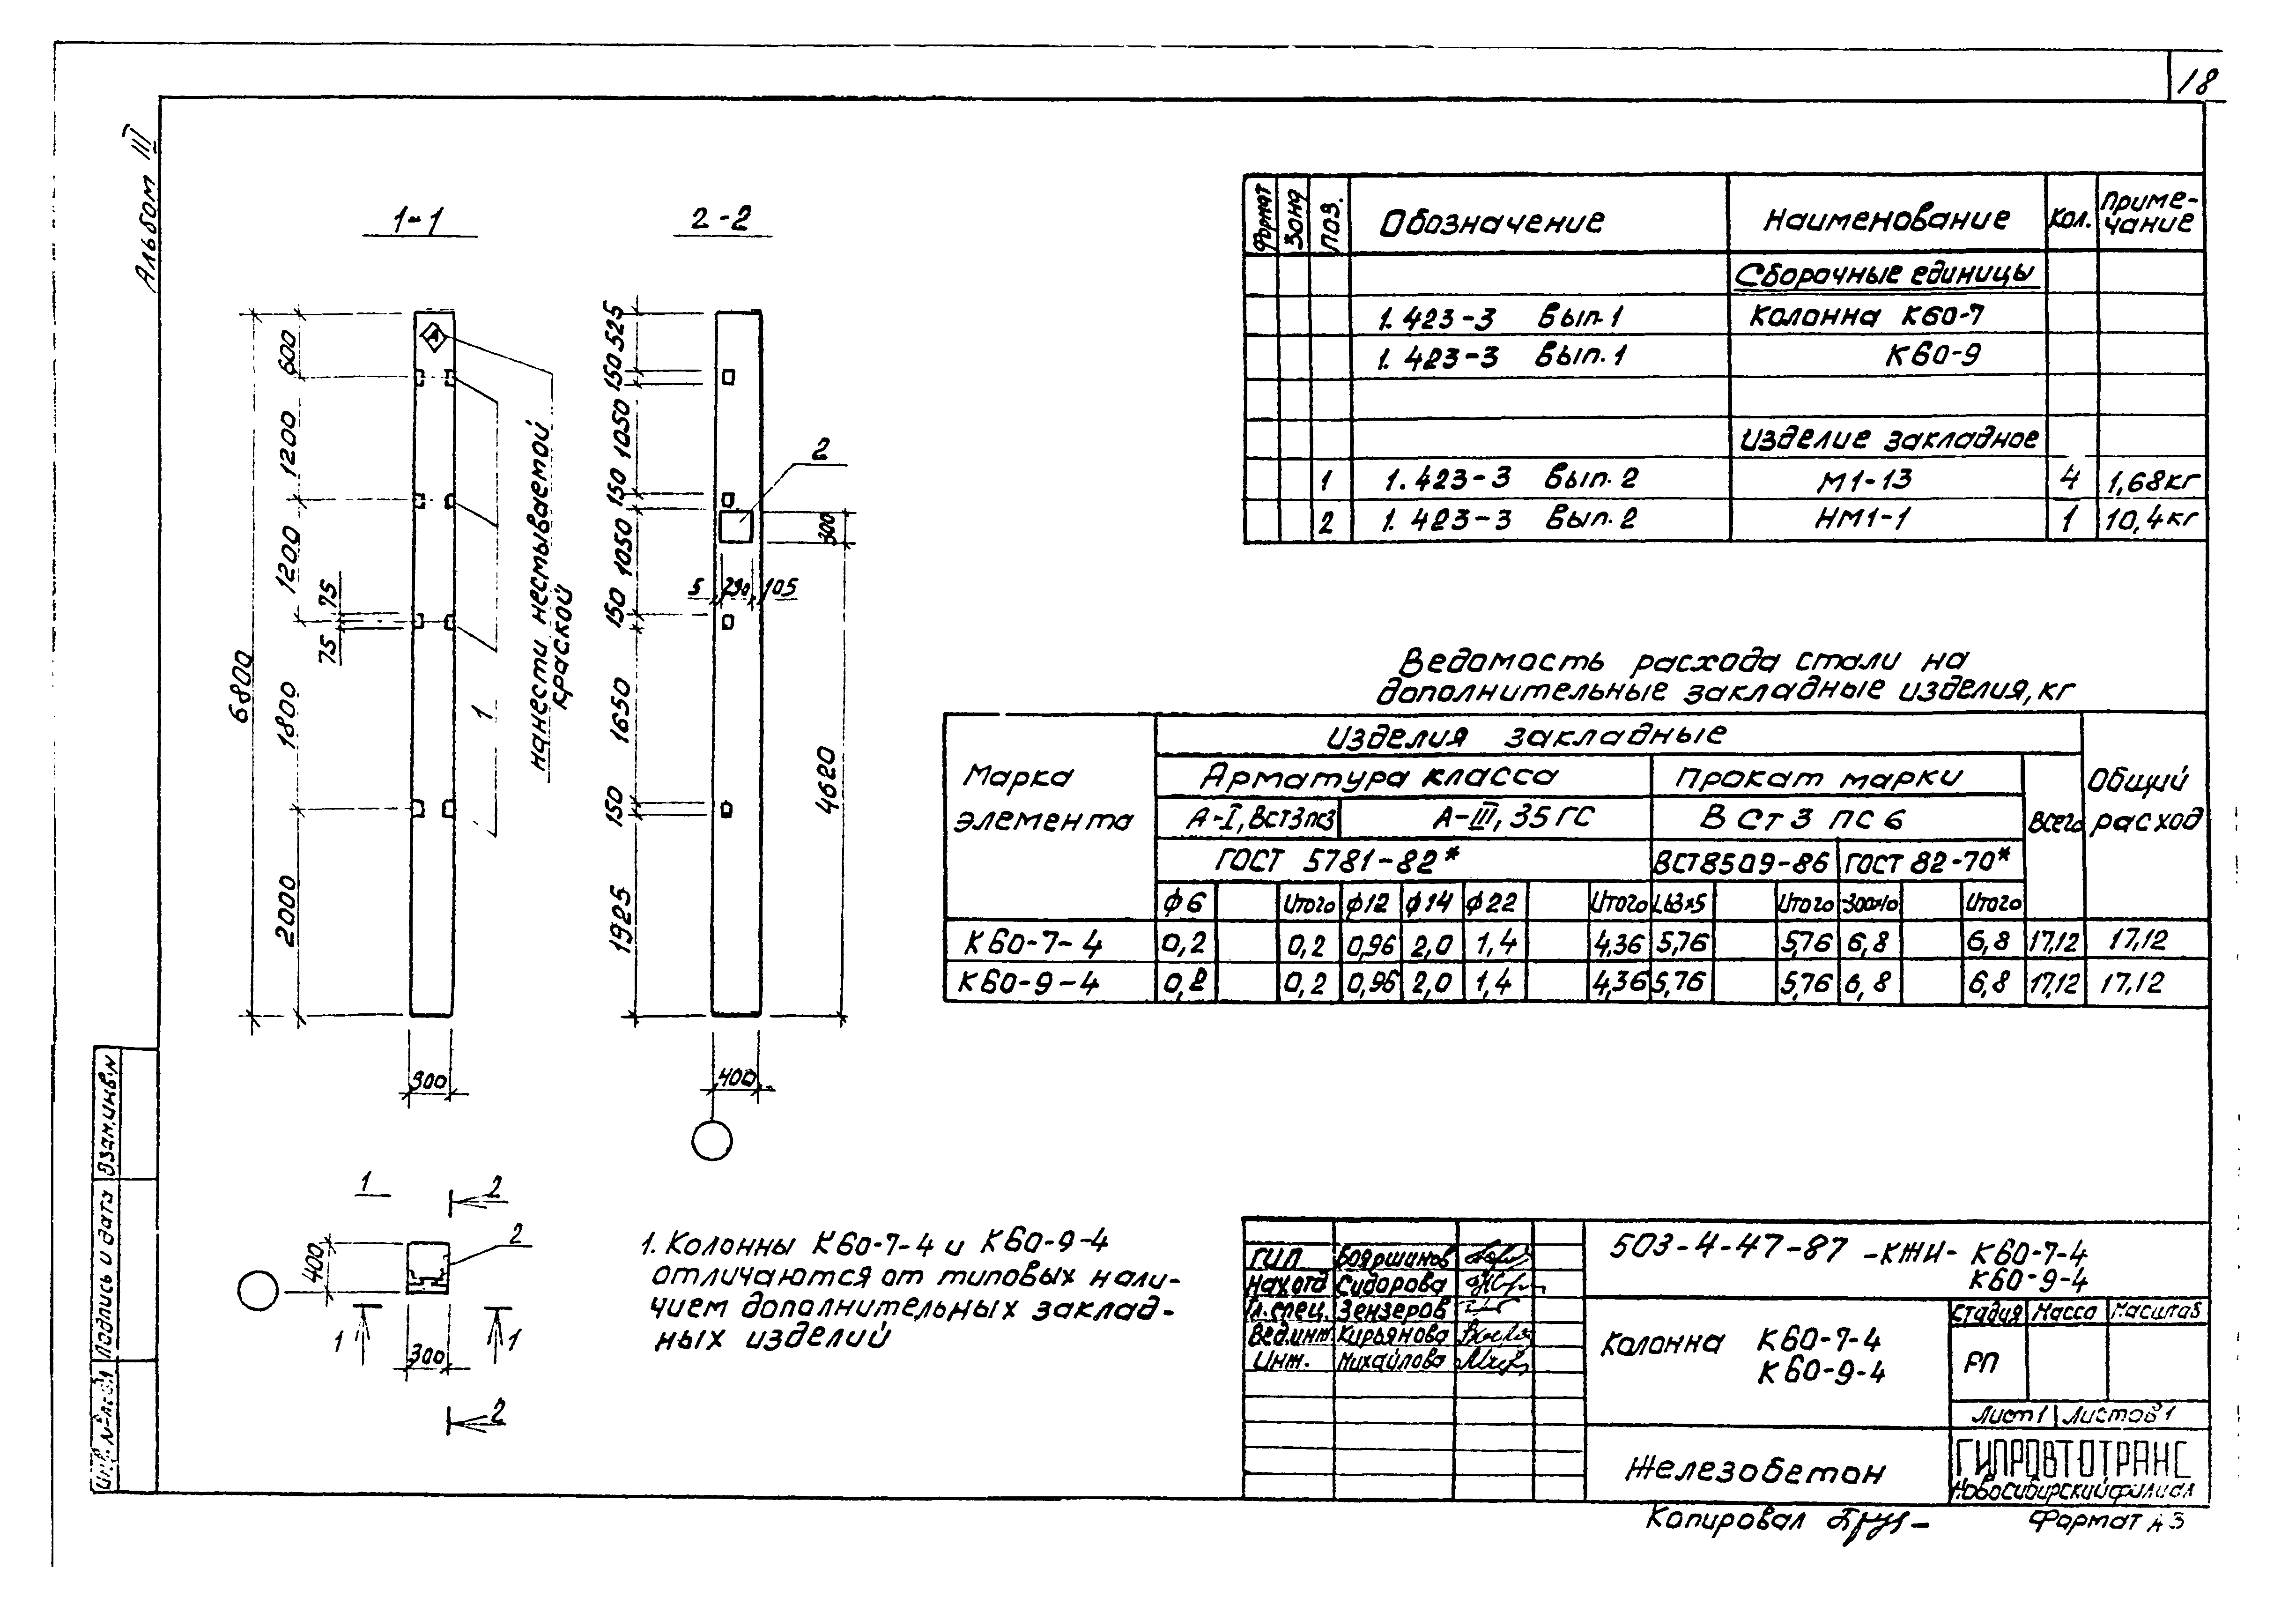 18
Альбом III
1-1
2-2
6800
600
1200
1200
75
75
1800
2000
300
1
нанести несмываемой
краской
525
150
1050
150
1050
150
1650
150
1925
2
300
5
290
105
4620
400
1
2
400
2
1
1
300
2
1. Колонны К60-7-4 и К60-9-4
отличаются от типовых нали-
чием дополнительных заклад-
ных изделий
Формат Зона Поз. Обозначение Наименование Кол. Приме-
чание
Сборочные единицы
1.423-3 Вып.1 Колонна К60-7
1.423-3 Вып.1 К60-9
Изделие закладное
1 1.423-3 Вып.2 М1-13 4 1,68кг
2 1.423-3 Вып.2 НМ1-1 1 10,4кг
Ведомость расхода стали на
дополнительные закладные изделия, кг
Марка
элемента
Изделия закладные
Общий
расход
Арматура класса Прокат марки Всего
А-I, ВСт3пс3 А-III, 35ГС ВСт3пс6
ГОСТ 5781-82* ВСТ8509-86 ГОСТ 82-70*
ф6 Итого ф12 ф14 ф22 Итого L63х5 Итого -300х10 Итого
К60-7-4 0,2 0,2 0,96 2,0 1,4 4,36 5,76 5,76 6,8 6,8 17,12 17,12
К60-9-4 0,2 0,2 0,96 2,0 1,4 4,36 5,76 5,76 6,8 6,8 17,12 17,12
Взам.инв.№
Подпись и дата
Инв.№подл
ГИП Бояршинов
Нач.отд Сидорова
Гл.спец. Зензеров
Вед.инж Кирьянова
Инж. Михайлова
503-4-47-87 -КЖИ- К60-7-4
К60-9-4
Колонна К60-7-4
К60-9-4
Стадия Масса Масштаб
РП
Лист 1 Листов 1
Железобетон
ГИПРОАВТОТРАНС
Новосибирский филиал
Копировал
Формат А3